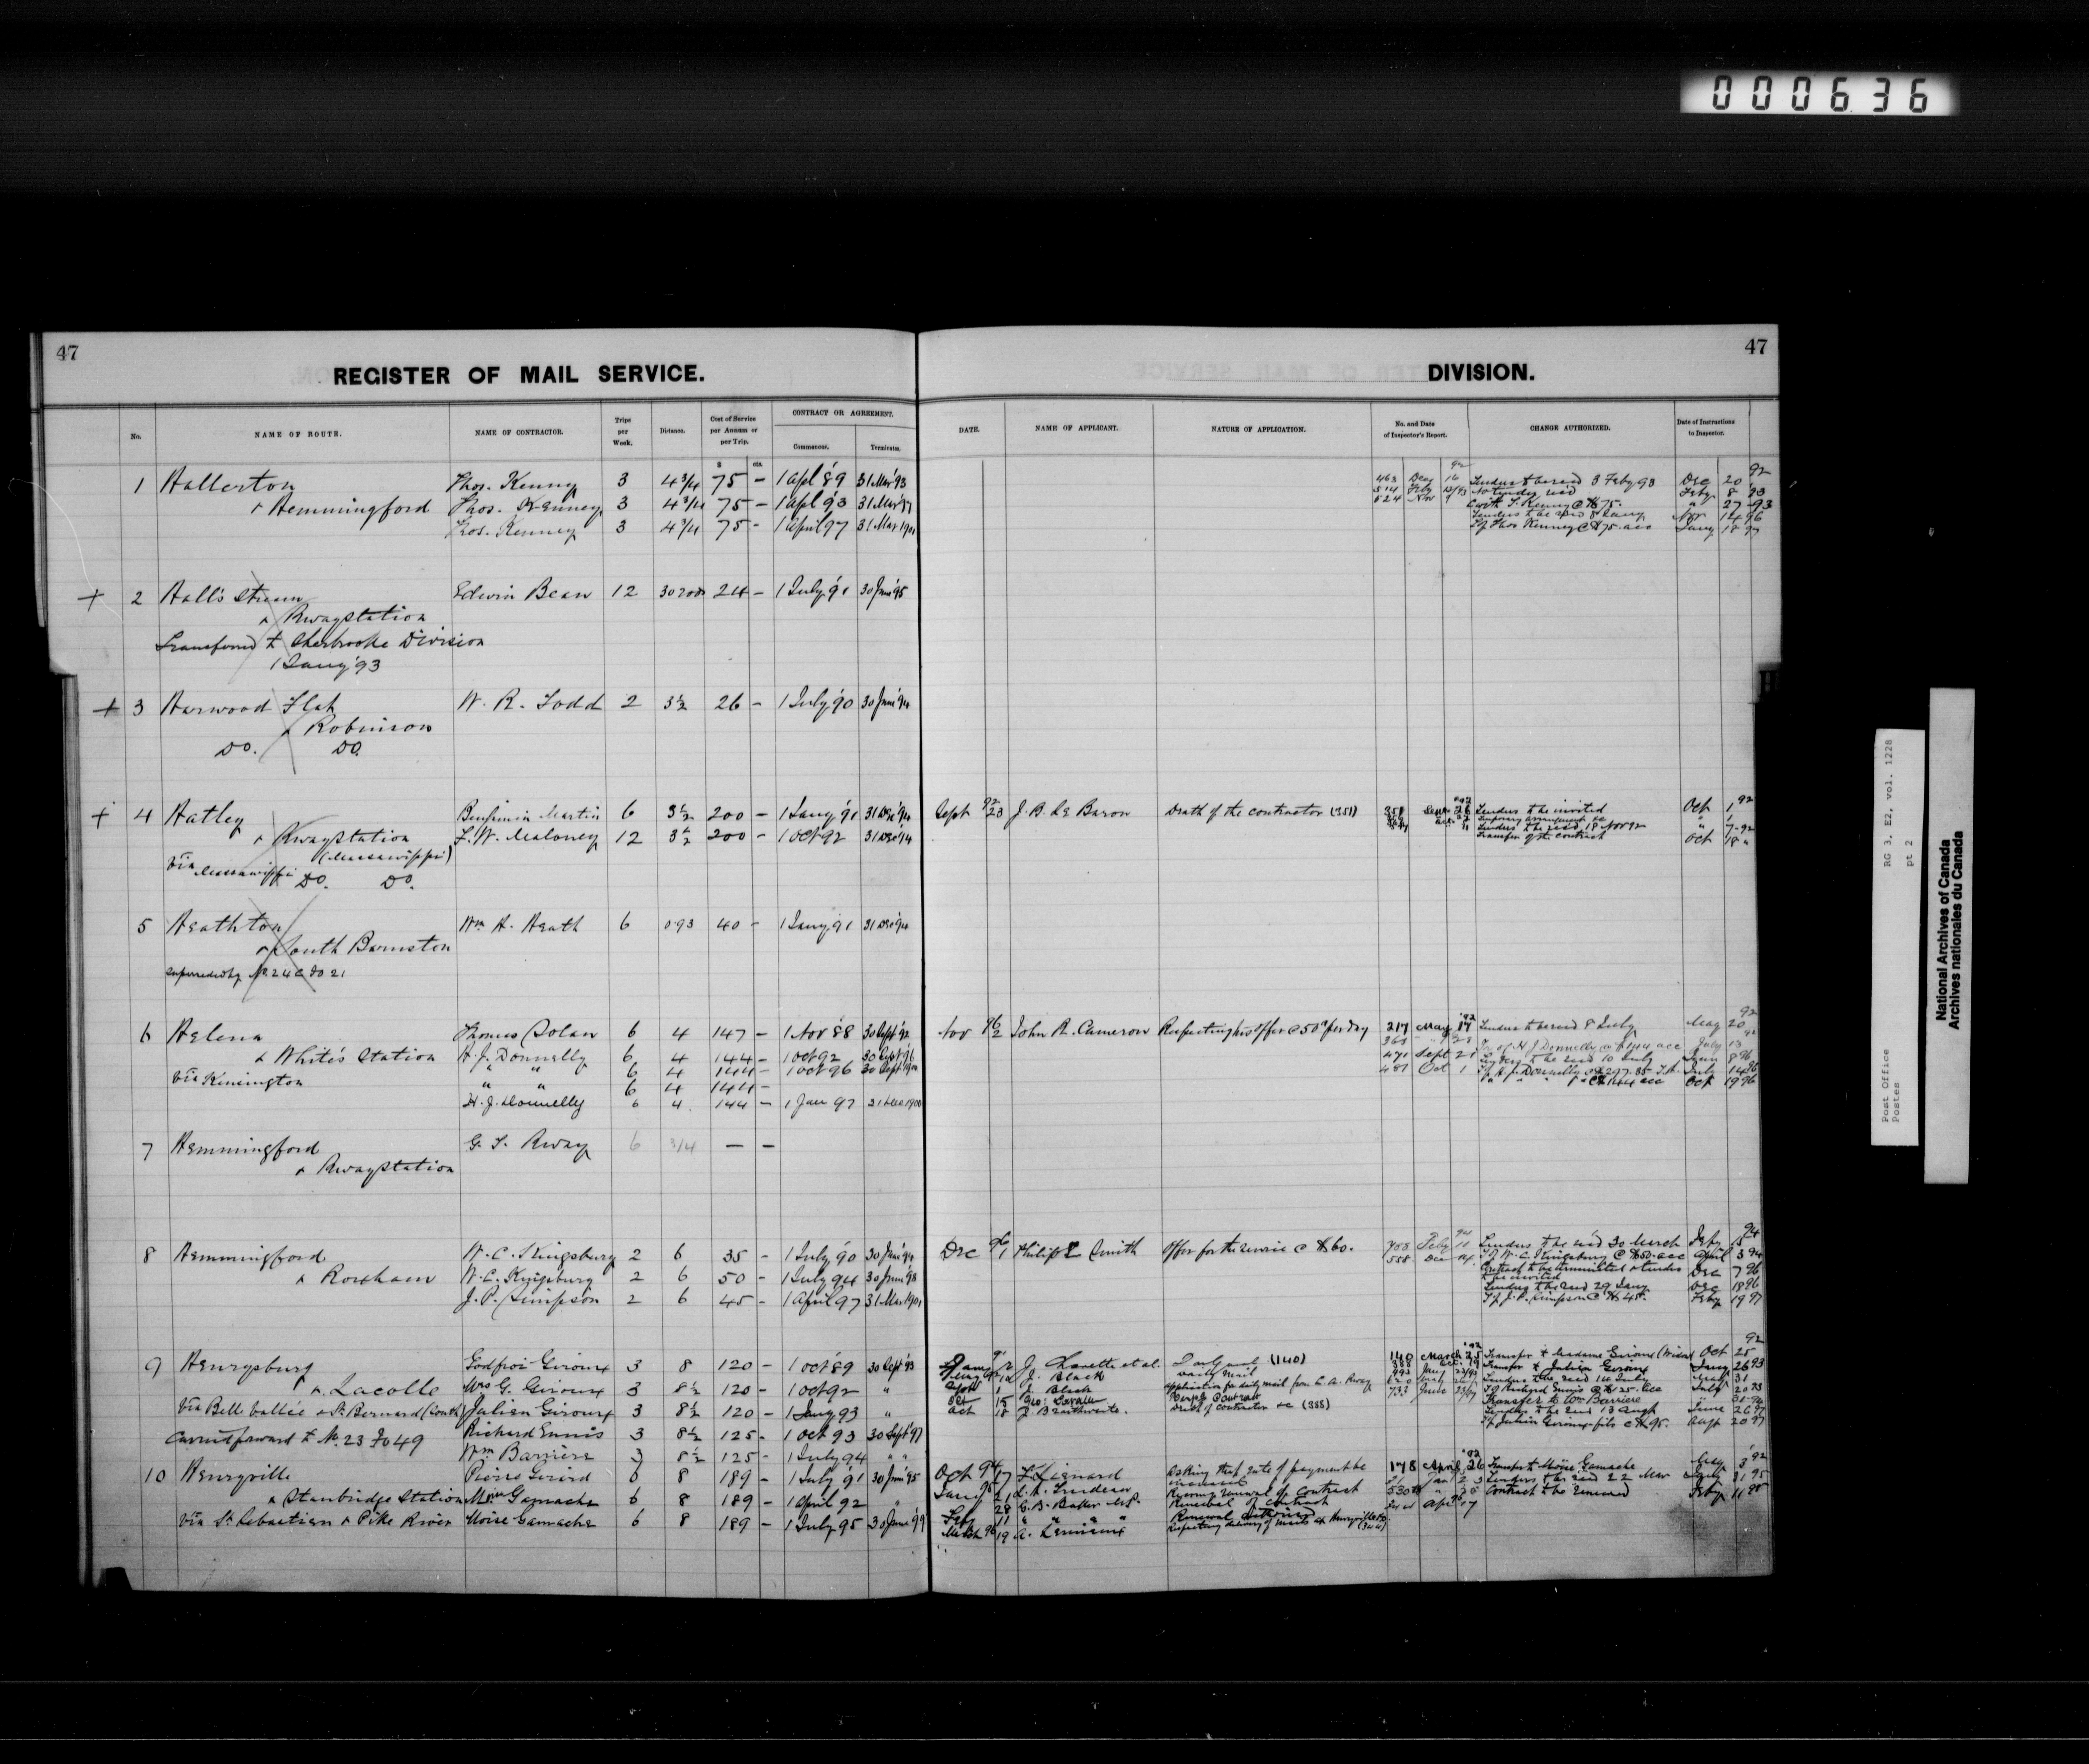 000636
47
REGISTER OF MAIL SERVICE.
No.
NAME OF ROUTE.
NAME OF CONTRACTOR.
Trips per Week.
Distance.
Cost of Service per Annum or per Trip.
CONTRACT OR AGREEMENT.
Commences.
Terminates.
$ cts.
1 Hallerton Thos. Kenny 3 4 3/4 75 – 1 Apl '89 31 Mar '93
& Hemmingford Thos. Kenney 3 4 3/4 75 – 1 Apl '93 31 Mar '97
Thos. Kenney 3 4 3/4 75 – 1 April 97 31 Mar 1901
+ 2 Hall's Stream Edwin Bean 12 30 rods 24 – 1 July '91 30 June '95
& Rwaystation
Transferred to Sherbrooke Division
1 Jany '93
+ 3 Harwood Flat W. R. Todd 2 3½ 26 – 1 July '90 30 June '94
& Robinson
Do. Do.
+ 4 Hatley Benjimin Martin 6 3½ 200 – 1 Jany '91 31 Dec '94
& Rwaystation L. W. Maloney 12 3½ 200 – 1 Oct 92 31 Dec '94
(Massawippi)
Via Massawippi Do. Do.
5 Heathton Wm H. Heath 6 0.93 40 – 1 Jany 91 31 Dec '94
& South Barnston
Superseded by No. 24 @ Fo 21
6 Helena Thomas Dolan 6 4 147 – 1 Nov '88 30 Sept '92
& White's Station H. J. Donnelly 6 4 144 – 1 Oct 92 30 Sept '96
" " 6 4 144 – 1 Oct 96 30 Sept 1900
Via Kensington " " 6 4 144 –
H. J. Donnelly 6 4 144 – 1 Jan 97 31 Dec 1900
7 Hemmingford G. T. Rway 6 3/4 — –
& Rwaystation
8 Hemmingford W. C. Kingsbury 2 6 35 – 1 July '90 30 June '94
& Roxham W. C. Kingsbury 2 6 50 – 1 July 94 30 June '98
J. P. Simpson 2 6 45 – 1 April 97 31 Mar 1901
9 Henrysburg Godfroi Giroux 3 8 120 – 1 Oct '89 30 Sept '93
& Lacolle Mrs G. Giroux 3 8½ 120 – 1 Oct 92 "
Via Bell vallée & St. Bernard (South) Julien Giroux 3 8½ 120 – 1 Jany 93 "
Carried forward to No. 23 Fo 49 Richard Ennis 3 8½ 125 – 1 Oct 93 30 Sept '97
Wm Barrière 3 8½ 125 – 1 July 94 " "
10 Henryville Pierre Girard 6 8 189 – 1 July '91 30 June '95
& Stanbridge Station Moise Gamache 6 8 189 – 1 April 92 "
Via St. Sebastien & Pike River Moise Gamache 6 8 189 – 1 July 95 30 June '99
47
DIVISION.
DATE.
NAME OF APPLICANT.
NATURE OF APPLICATION.
No. and Date of Inspector's Report.
CHANGE AUTHORIZED.
Date of Instructions to Inspector.
463 Dec 16 92 Tenders to be recd 3 Feby 93 Dec 20 92
514 Feby No tender recd Feby 8 93
524 Cont T. Kenny @ $75. " 27 93
Tenders to be recd 8 Jany Nov 14 96
Tf Thos Kenney @ $75. acc Jany 18 97
Sept 92 23 J. B. Le Baron Death of the contractor (351) Tenders to be invited Oct 1 92
Temporary arrangement &c " 1
Tenders to be recd 18 Nov 92 " 7 92
Transfer of the contract Oct 18 "
Nov 96 2 John R. Cameron Respecting his offer @ 50c per day 217 May 17 92 Tenders to be recd 8 July May 20 92
Tr of H J Donnelly @ $144 acc July 13
471 Sept 21 Tenders to be recd 10 July June 8 96
481 Oct 1 Oct 19 96
Dec 96 1 Philip E Smith Offer for the service @ $60. Feby Tenders to be recd 30 March Feby 94
558 Dec 14 Tf W. C. Kingsbury @ $50. acc April 3 94
Contract to be terminated & tenders to be invited Dec 7 96
Tenders to be recd 29 Jany Dec 18 96
Tf J. P. Simpson @ $45. Feby 19 97
J. Charette et al. Daily mail (140) 140 March 25 92 Transfer to Madame Giroux (Widow) Oct 25 92
J. Black Daily mail Transfer to Julien Giroux Jany 26 93
J. Black Application for daily mail from C. A. Rway Tenders to be recd 14 July
Oct 15 Geo: Tf Richard Ennis @ $125. acc July 20 93
Oct 18 J. Braithwaite. Death of contractor &c (388) Transfer to Wm Barrière
Tenders to be recd 13 Augt June 26 97
Tf Julien Giroux fils @ $95. Augt 20 97
Oct 94 17 Asking that rate of payment be increased 178 April 26 92 Transfer to Moise Gamache May 3 92
Renewal of contract Tenders to be recd 22 Mar
28 G. B. Baker M.P. Renewal of contract Contract to be renewed Feby 11 95
Feby 11 " " " Renewal
March 96 19 Respecting delivery of mails at Henryville &c (344)
Post Office
Postes
RG 3, E2, vol. 1228
pt 2
National Archives of Canada
Archives nationales du Canada